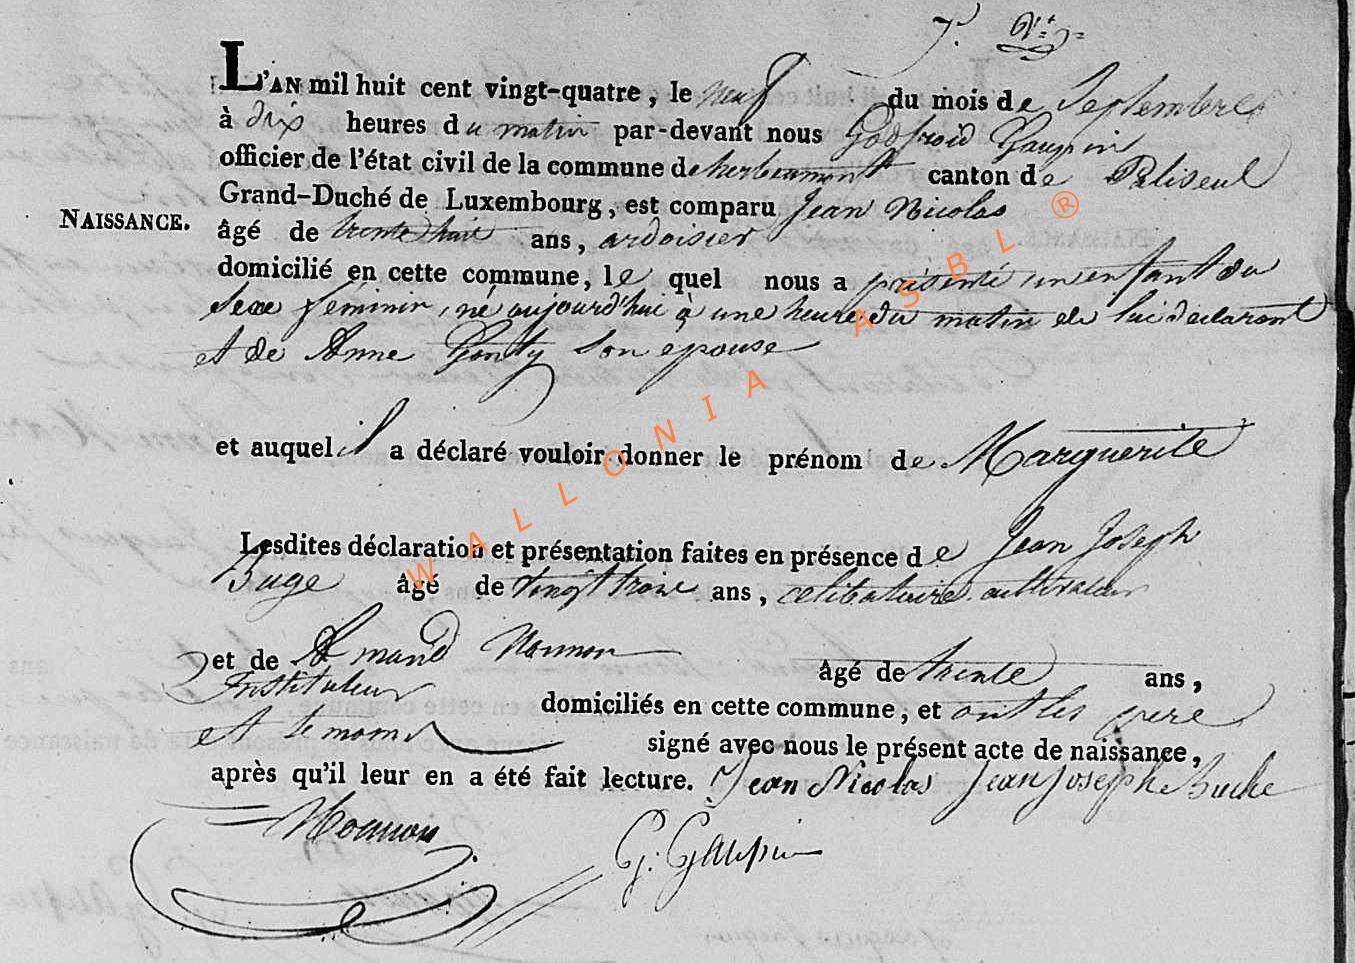 L'AN mil huit cent vingt-quatre, le neuf du mois de Septembre
à dix heures du matin par-devant nous Godfroid Gaupin
officier de l'état civil de la commune de herbeumont canton de Paliseul
Grand-Duché de Luxembourg, est comparu Jean Nicolas
NAISSANCE.
âgé de trente huit ans, ardoisier
domicilié en cette commune, le quel nous a présenté un enfant du
sexe féminin, né aujourd'hui à une heure du matin de lui déclarant
et de Anne Ponty son epouse
et auquel il a déclaré vouloir donner le prénom de Marguerite
Lesdites déclaration et présentation faites en présence de Jean Joseph
Buge âgé de vingt trois ans, celibataire cultivateur
et de Armand Noumon âgé de trente ans,
Instituteur domiciliés en cette commune, et ont les père
et temoins signé avec nous le présent acte de naissance,
après qu'il leur en a été fait lecture. Jean Nicolas Jean Joseph Buche
G. Gaupin
WALLONIA ASBL ®